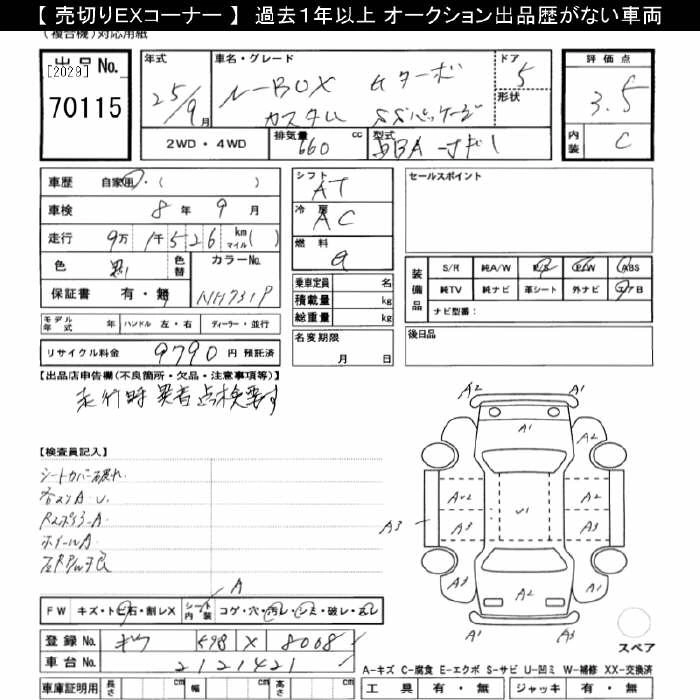 【 売切りEXコーナー 】 過去1年以上 オークション出品歴がない車両
(複合機)対応用紙
出品No.
[2029]
70115
年式
25/9月
車名・グレード
N-BOX Gターボ
カスタム SSパッケージ
ドア
5
形状
評価点
3.5
内装
C
2WD・4WD
排気量
660 cc
型式
DBA-
車歴 自家用・( )
車検 8年 9月
走行 9万1千526 km マイル( )
色 黒 色替
カラーNo.
NH731P
保証書 有・無
シフト
AT
冷房
AC
燃料
G
乗車定員 名
積載量 kg
総重量 kg
セールスポイント
装備品
S/R 純A/W P/S P/W ABS
純TV 純ナビ 革シート 外ナビ エアB
ナビ型番:
モデル年式 年 ハンドル 左・右 ディーラー・並行
リサイクル料金 9790 円 預託済
名変期限
月 日
後日品
【出品店申告欄(不良箇所・欠品・注意事項等)】
走行時 異音 点検要す
【検査員記入】
シートカバー破れ.
各スリA U
Rスポイラ-A
ホイールA
A2 A1
A1
A2 A2
AU2 A2
U1
A3 A3 A3
A3 A3
A1
A1 A2
A
FW キズ・トビ石・割レX
シート内装 コゲ・穴・汚レ・シミ・破レ・スレ
登録No. 498 X 8008
車台No. 2121421
スペア
A-キズ C-腐食 E-エクボ S-サビ U-凹ミ W-補修 XX-交換済
車庫証明用 長さ cm 幅 cm 高さ cm
工具 有・無 ジャッキ 有・無